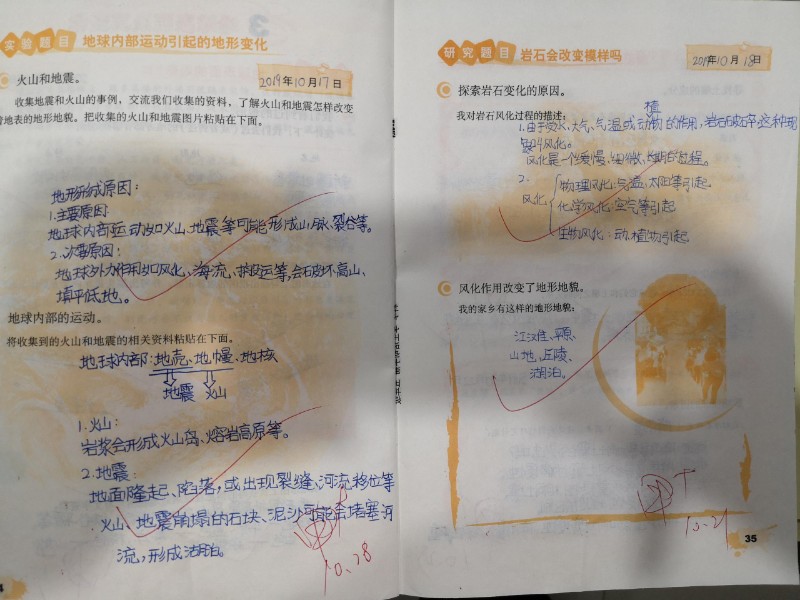 实验题目 地球内部运动引起的地形变化
火山和地震。
2019年10月17日
收集地震和火山的事例，交流我们收集的资料，了解火山和地震怎样改变
着地表的地形地貌。把收集的火山和地震图片粘贴在下面。
地形形成原因：
1.主要原因
地球内部运动如火山、地震等可能形成山脉、裂谷等。
2.次要原因：
地球外力作用如风化、海流、搬运等,会破坏高山、
填平低地。
地球内部的运动。
将收集到的火山和地震的相关资料粘贴在下面。
地球内部：地壳、地幔、地核
地震 火山
1.火山：
岩浆会形成火山岛、熔岩高原等。
2.地震：
地面隆起、陷落,或出现裂缝、河流移位等
火山、地震崩塌的石块、泥沙可能会堵塞河
流,形成湖泊。
10.28
研究题目 岩石会改变模样吗
2019年10月18日
探索岩石变化的原因。
我对岩石风化过程的描述：
植
1.由于水、大气、气温或动物的作用,岩石破碎这种现
象叫风化。
风化是一个缓慢、细微、长期的过程。
2.
风化
物理风化:气温、太阳等引起
化学风化:空气等引起
生物风化:动、植物引起
风化作用改变了地形地貌。
我的家乡有这样的地形地貌：
江汉平原、
山地、丘陵、
湖泊。
10.21
35